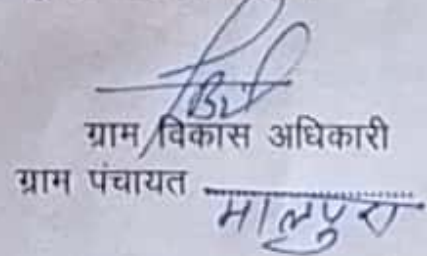 ग्राम विकास अधिकारी
ग्राम पंचायत मालपुरा